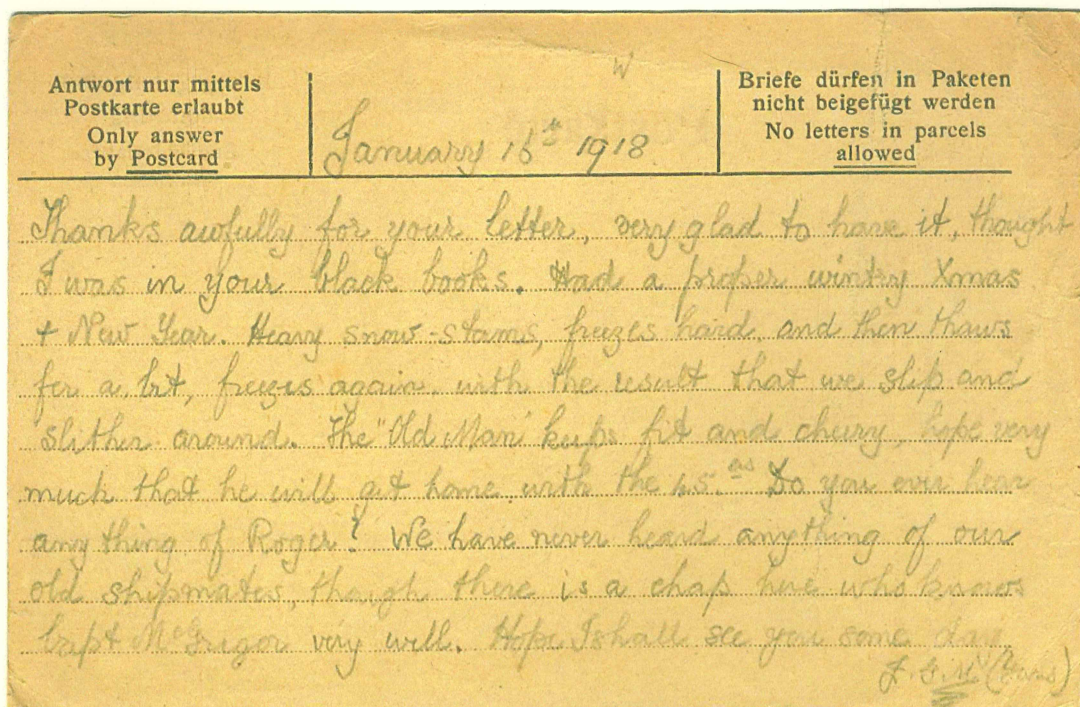 Antwort nur mittels
Postkarte erlaubt
Only answer
by Postcard
W
January 16th 1918
Briefe dürfen in Paketen
nicht beigefügt werden
No letters in parcels
allowed
Thanks awfully for your letter, very glad to have it, thought
I was in your black books. Had a proper wintry Xmas
+ New Year. Heavy snow-storms, freezes hard, and then thaws
for a bit, freezes again, with the result that we slip and
slither around. The "Old Man" keeps fit and cheery, hope very
much that he will get home with the Do you ever hear
any thing of Roger? We have never heard anything of our
old shipmates, though there is a chap here who knows
Capt McGrigor very well. Hope I shall see you some day